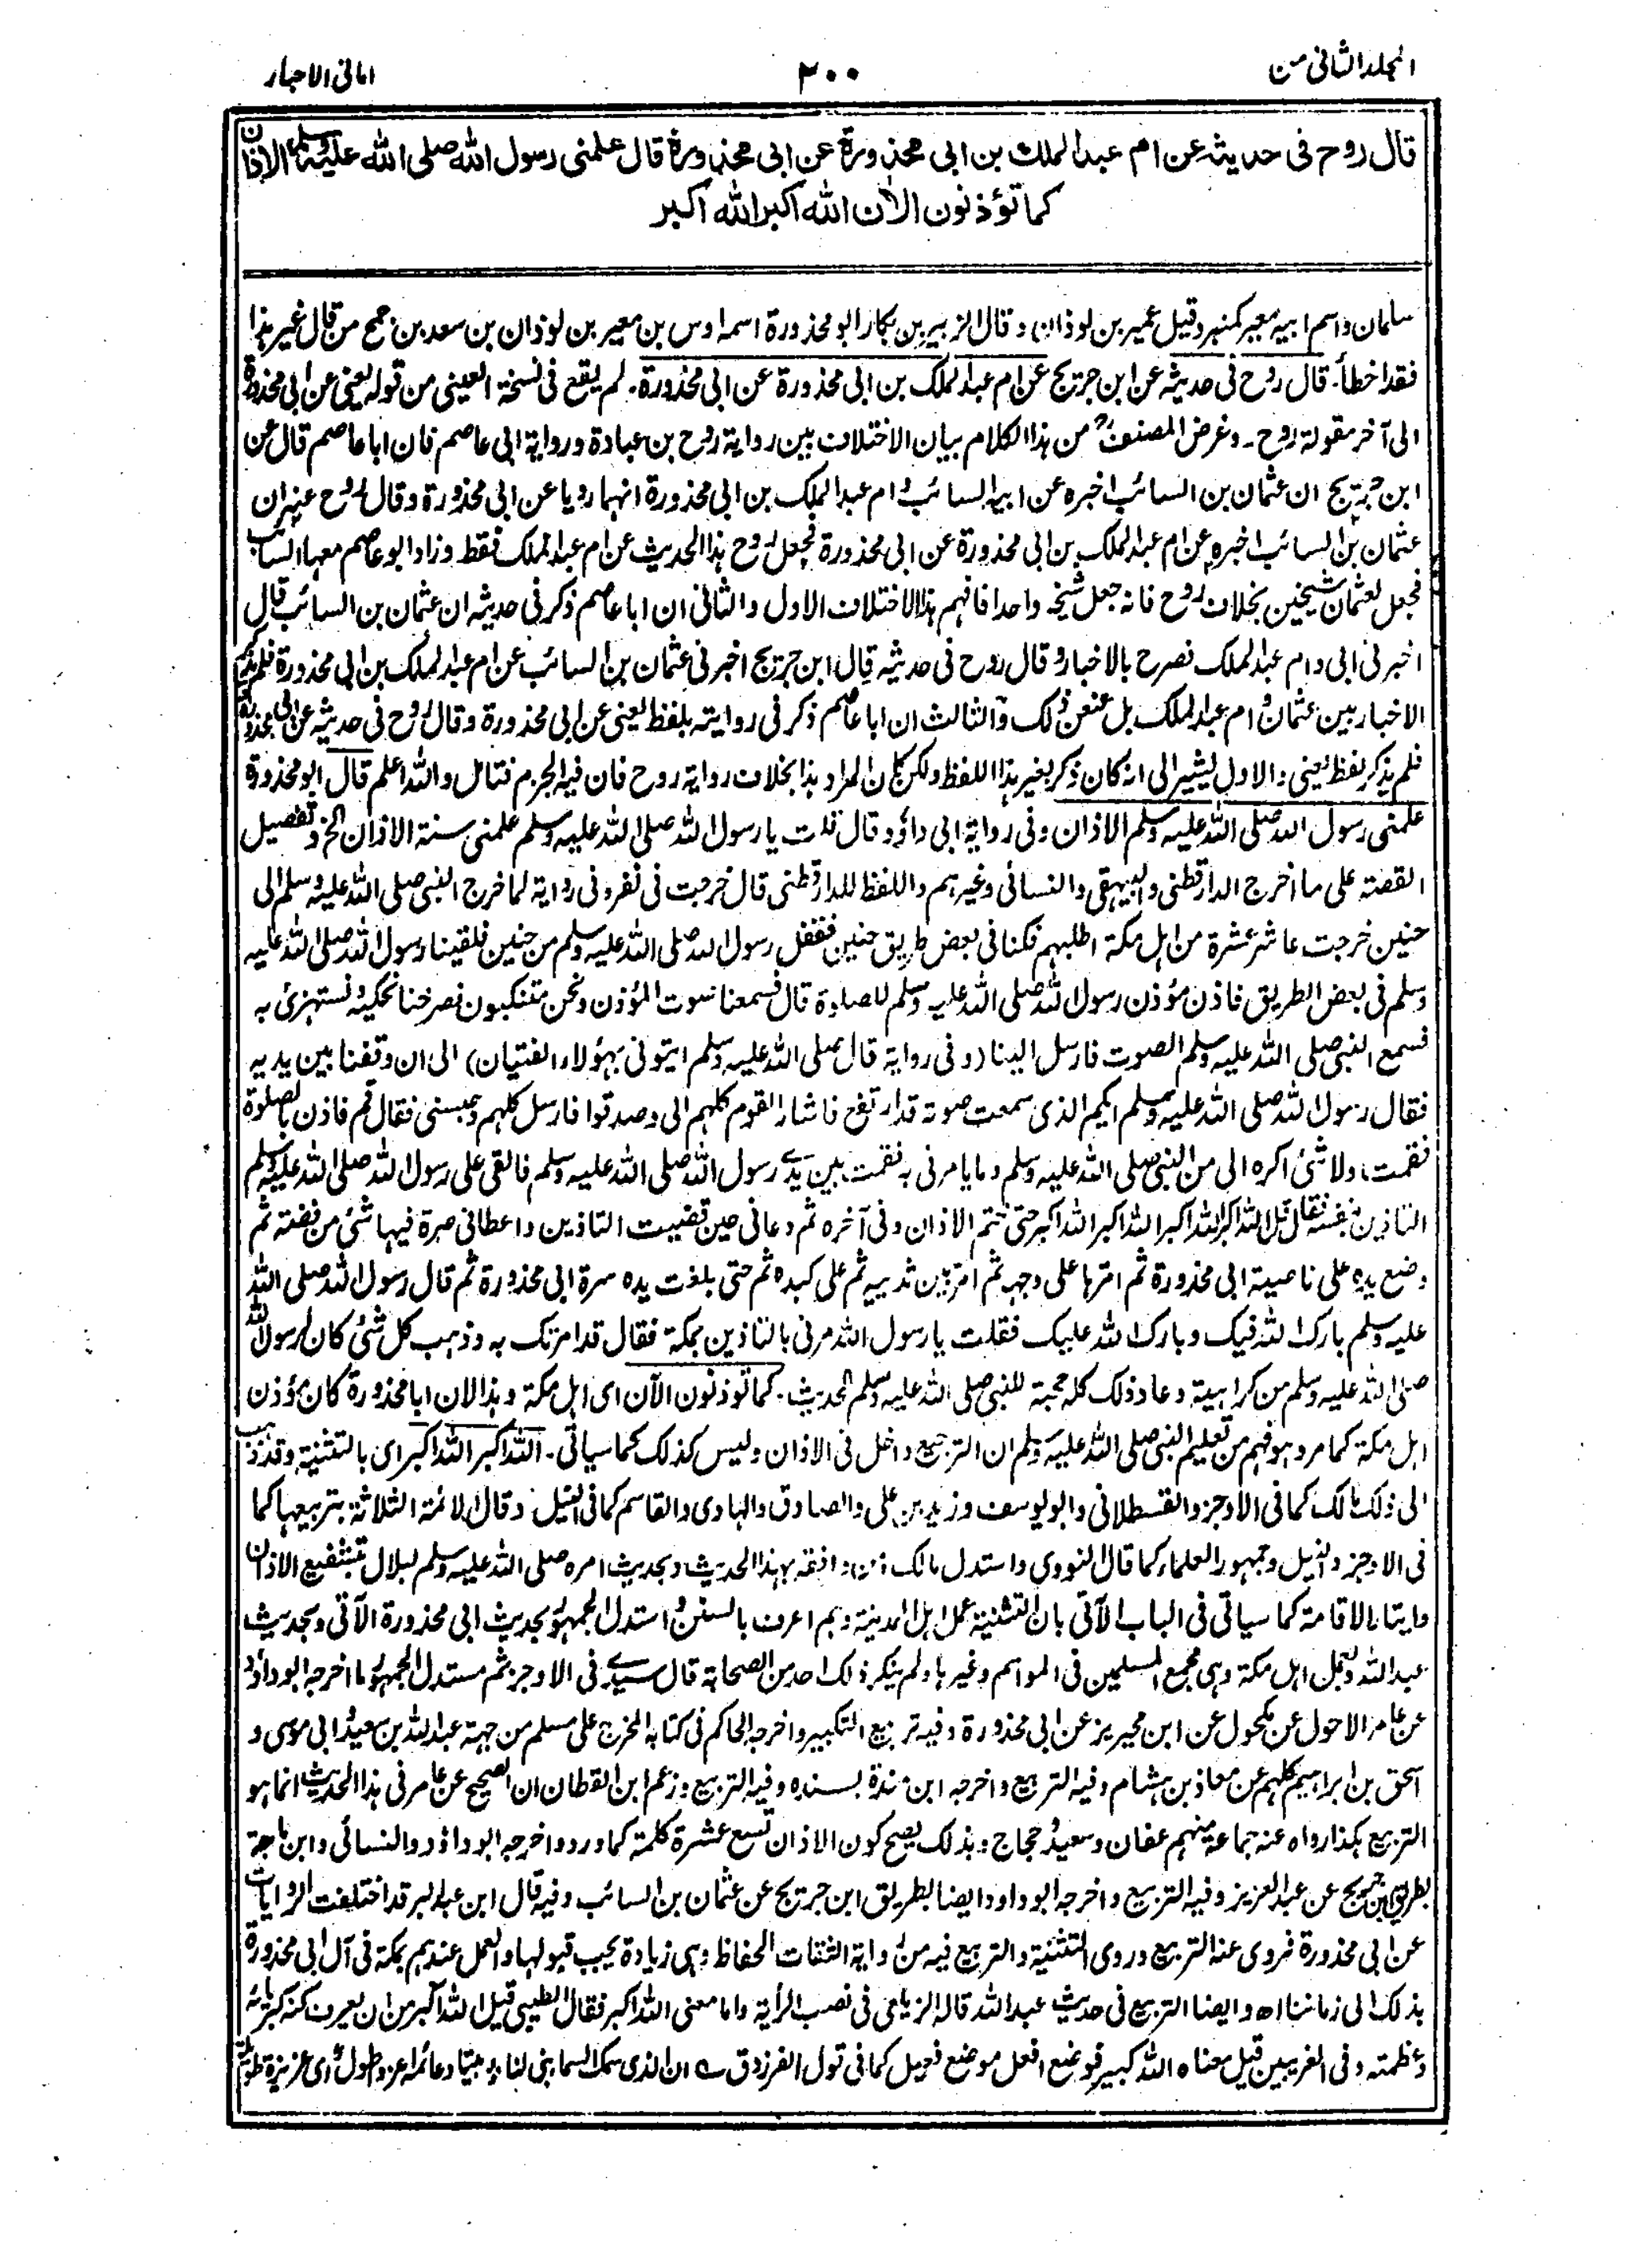 المجلد الثانی من
٢٠٠
امانی الاحبار
قال روح فی حدیثه عن ام عبد الملك بن ابی محذورة عن ابی محذورة قال علمنی رسول الله صلی الله علیه وسلم الاذان
كما تؤذنون الاٰن الله اكبر الله اكبر
سلمان واسم ابیه معیر كمنبر وقیل عمیر بن لوذان وقال الزبیر بن بكار ابو محذورة اسمه اوس بن معیر بن لوذان بن سعد بن جمح من قال غیر هذا
فقد اخطأ۔ قال روح فی حدیثه عن ابن جریج عن ام عبد الملك بن ابی محذورة عن ابی محذورة۔ لم یقع فی نسخة العینی من قوله یعنی عن ابی محذورة
الی آخر مقولة روح۔ وغرض المصنف من هذا الكلام بیان الاختلاف بین روایة روح بن عبادة وروایة ابی عاصم فان ابا عاصم قال عن
ابن جریج ان عثمان بن السائب اخبره عن ابیه السائب وام عبد الملك بن ابی محذورة انهما رویا عن ابی محذورة وقال روح عنه ان
عثمان بن السائب اخبره عن ام عبد الملك بن ابی محذورة عن ابی محذورة فجعل روح هذا الحدیث عن ام عبد الملك فقط وزاد ابو عاصم معها السائب
فجعل لعثمان شیخین بخلاف روح فانه جعل شیخه واحدا فافهم هذا الاختلاف الاول والثانی ان ابا عاصم ذكر فی حدیثه ان عثمان بن السائب قال
اخبرنی ابی وام عبد الملك فصرح بالاخبار وقال روح فی حدیثه قال ابن جریج اخبرنی عثمان بن السائب عن ام عبد الملك بن ابی محذورة فلم یذكر
الاخبار بین عثمان وام عبد الملك بل عنعن ذلك والثالث ان ابا عاصم ذكر فی روایته بلفظ یعنی عن ابی محذورة وقال روح فی حدیثه عن ابی محذورة
فلم یذكر لفظ یعنی والاول یشیر الی انه كان ذكر بغیر هذا اللفظ ولكن كان المراد هذا بخلاف روایة روح فان فیه الجزم فتامل والله اعلم قال ابو محذورة
علمنی رسول الله صلی الله علیه وسلم الاذان وفی روایة ابی داؤد قال قلت یا رسول الله صلی الله علیه وسلم علمنی سنة الاذان الخ وتفصیل
القصة علی ما اخرج الدارقطنی والبیهقی والنسائی وغیرهم واللفظ للدارقطنی قال خرجت فی نفر وفی روایة لما خرج النبی صلی الله علیه وسلم الی
حنین خرجت عاشر عشرة من اهل مكة اطلبهم فكنا فی بعض طریق حنین فقفل رسول الله صلی الله علیه وسلم من حنین فلقینا رسول الله صلی الله علیه
وسلم فی بعض الطریق فاذن مؤذن رسول الله صلی الله علیه وسلم للصلوة قال فسمعنا صوت المؤذن ونحن متنكبون فصرخنا نحكیه ونستهزئ به
فسمع النبی صلی الله علیه وسلم الصوت فارسل الینا (وفی روایة قال صلی الله علیه وسلم ایتونی بهؤلاء الفتیان) الی ان وقفنا بین یدیه
فقال رسول الله صلی الله علیه وسلم ایكم الذی سمعت صوته قد ارتفع فاشار القوم كلهم الی وصدقوا فارسل كلهم وحبسنی فقال قم فاذن بالصلوة
فقمت ولا شئ اكره الی من النبی صلی الله علیه وسلم وما یامرنی به فقمت بین یدی رسول الله صلی الله علیه وسلم فالقی علی رسول الله صلی الله علیه وسلم
التاذین بنفسه فقال قل الله اكبر الله اكبر الله اكبر الله اكبر حتی ختم الاذان وفی آخره ثم دعانی حین قضیت التاذین واعطانی صرة فیها شئ من فضة ثم
وضع یده علی ناصیة ابی محذورة ثم امرها علی وجهه ثم امر بین ثدییه ثم علی كبده ثم حتی بلغت یده سرة ابی محذورة ثم قال رسول الله صلی الله
علیه وسلم بارك الله فیك وبارك الله علیك فقلت یا رسول الله مرنی بالتاذین بمكة فقال قد امرتك به وذهب كل شئ كان لرسول الله
صلی الله علیه وسلم من كراهیة وعاد ذلك كله محبة للنبی صلی الله علیه وسلم الحدیث۔ كما تؤذنون الآن ای اهل مكة وهذا لان ابا محذورة كان مؤذن
اهل مكة كما مر وهو فهم من تعلیم النبی صلی الله علیه وسلم ان الترجیع داخل فی الاذان ولیس كذلك كما سیاتی۔ الله اكبر الله اكبر ای بالتثنیة وقد ذهب
الی ذلك مالك كما فی الاوجز والقسطلانی وابو یوسف وزید بن علی والصادق والهادی والقاسم كما فی النیل وقال الائمة الثلاثة بتربیعها كما
فی الاوجز والنیل وجمهور العلماء كما قال النووی واستدل مالك ومن وافقه بهذا الحدیث وبحدیث امره صلی الله علیه وسلم لبلال بتشفیع الاذان
وایتار الاقامة كما سیاتی فی الباب الآتی بان التثنیة عمل اهل المدینة وهم اعرف بالسنن واستدل الجمهور بحدیث ابی محذورة الآتی وبحدیث
عبد الله وبعمل اهل مكة وهی مجمع المسلمین فی المواسم وغیرها ولم ینكر ذلك احد من الصحابة قال سیدی فی الاوجز ثم مستدل الجمهور ما اخرجه ابو داؤد
عن عامر الاحول عن مكحول عن ابن محیریز عن ابی محذورة وفیه تربیع التكبیر واخرجه الحاكم فی كتابه المخرج علی مسلم من جهة عبد الله بن سعید وابی موسی و
اسحق بن ابراهیم كلهم عن معاذ بن هشام وفیه التربیع واخرجه ابن مندة بسنده وفیه التربیع وزعم ابن القطان ان الصحیح عن عامر فی هذا الحدیث انما هو
التربیع هكذا رواه عنه جماعة منهم عفان وسعید وحجاج وبذلك یصح كون الاذان تسع عشرة كلمة كما ورد واخرجه ابو داؤد والنسائی وابن ماجة
بطریق ابن جریج عن عبد العزیز وفیه التربیع واخرجه ابو داود ایضا بطریق ابن جریج عن عثمان بن السائب وفیه قال ابن عبد البر قد اختلفت الروایات
عن ابی محذورة فروی عنه التربیع وروی التثنیة والتربیع فیه من روایة الثقات الحفاظ وهی زیادة یجب قبولها والعمل عندهم بمكة فی آل ابی محذورة
بذلك الی زماننا اه وایضا التربیع فی حدیث عبد الله قاله الزیلعی فی نصب الرأیة واما معنی الله اكبر فقال الطیبی قیل الله اكبر من ان یعرف كنه كبریائه
وعظمته وفی الغریبین قیل معناه الله كبیر فوضع افعل موضع فعیل كما فی قول الفرزدق ؎ ان الذی سمك السما بنی لنا ٭ بیتا دعائمه اعز واطول ٭ ای عزیزة طویلة